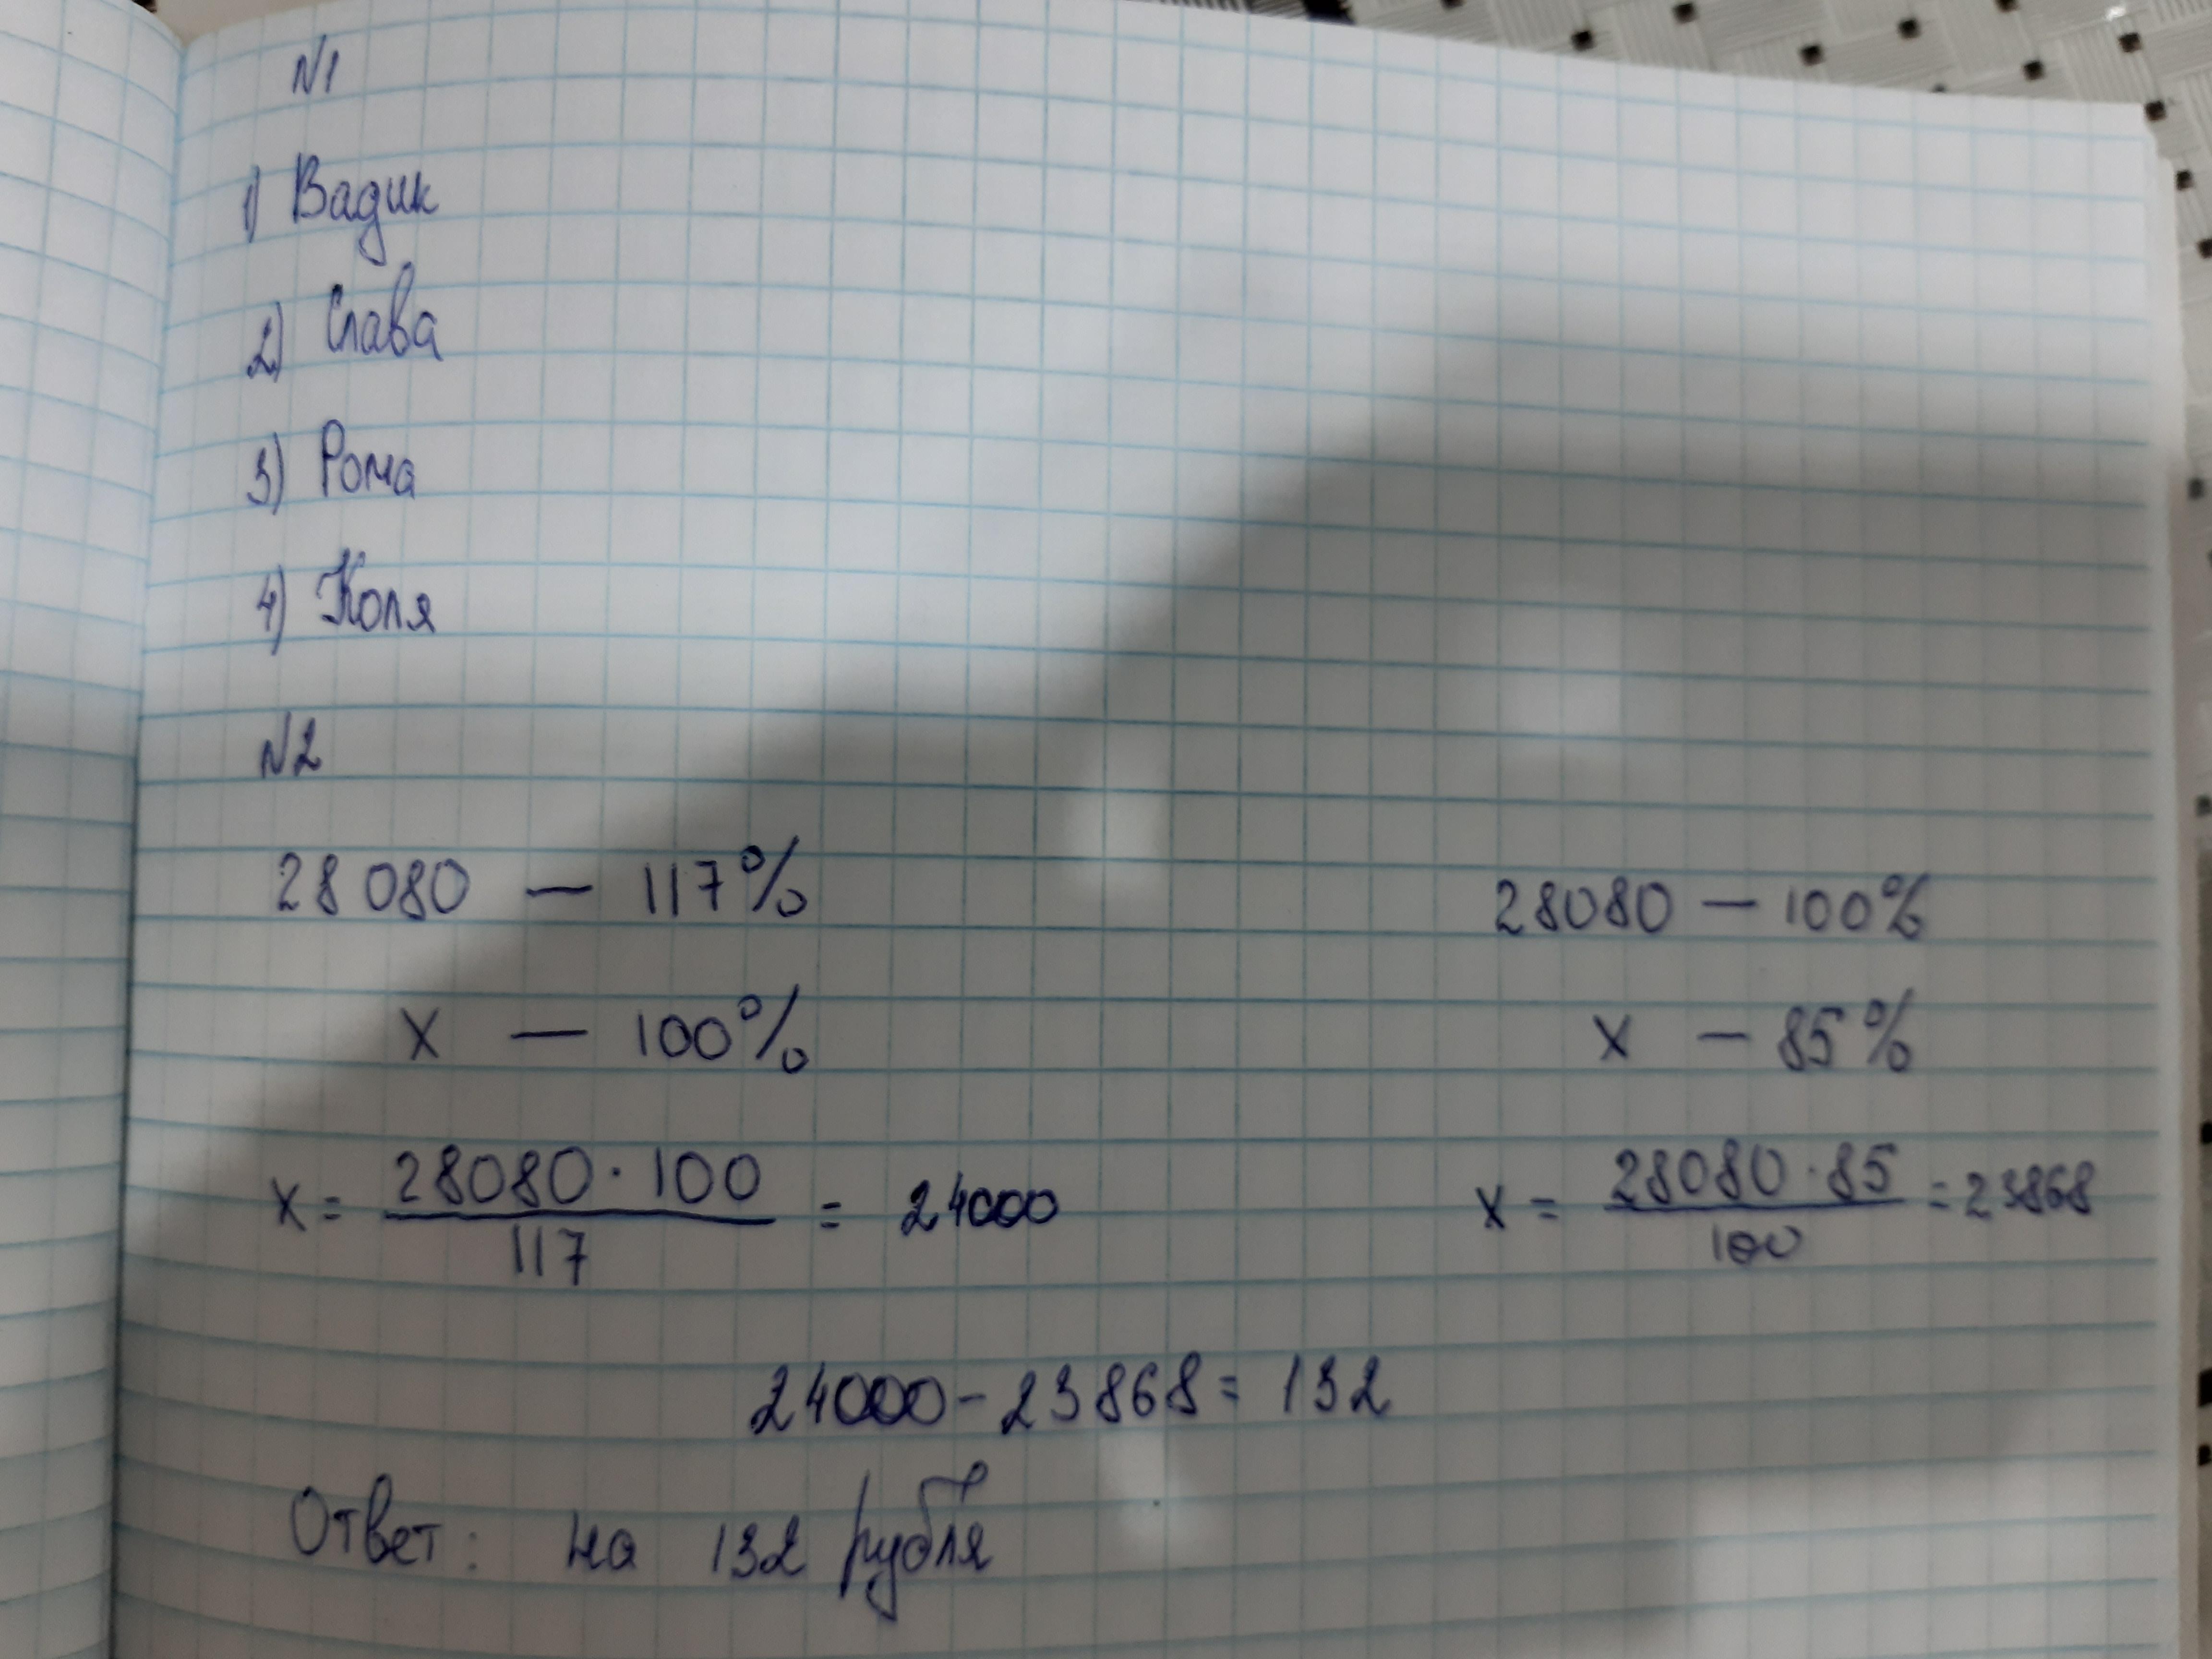 №1
1) Вадик
2) Слава
3) Рома
4) Коля
№2
28 080 — 117%
x — 100%
x = 28080 · 100 / 117 = 24000
28080 — 100%
x — 85%
x = 28080 · 85 / 100 = 23868
24000 - 23868 = 132
Ответ: на 132 рубля